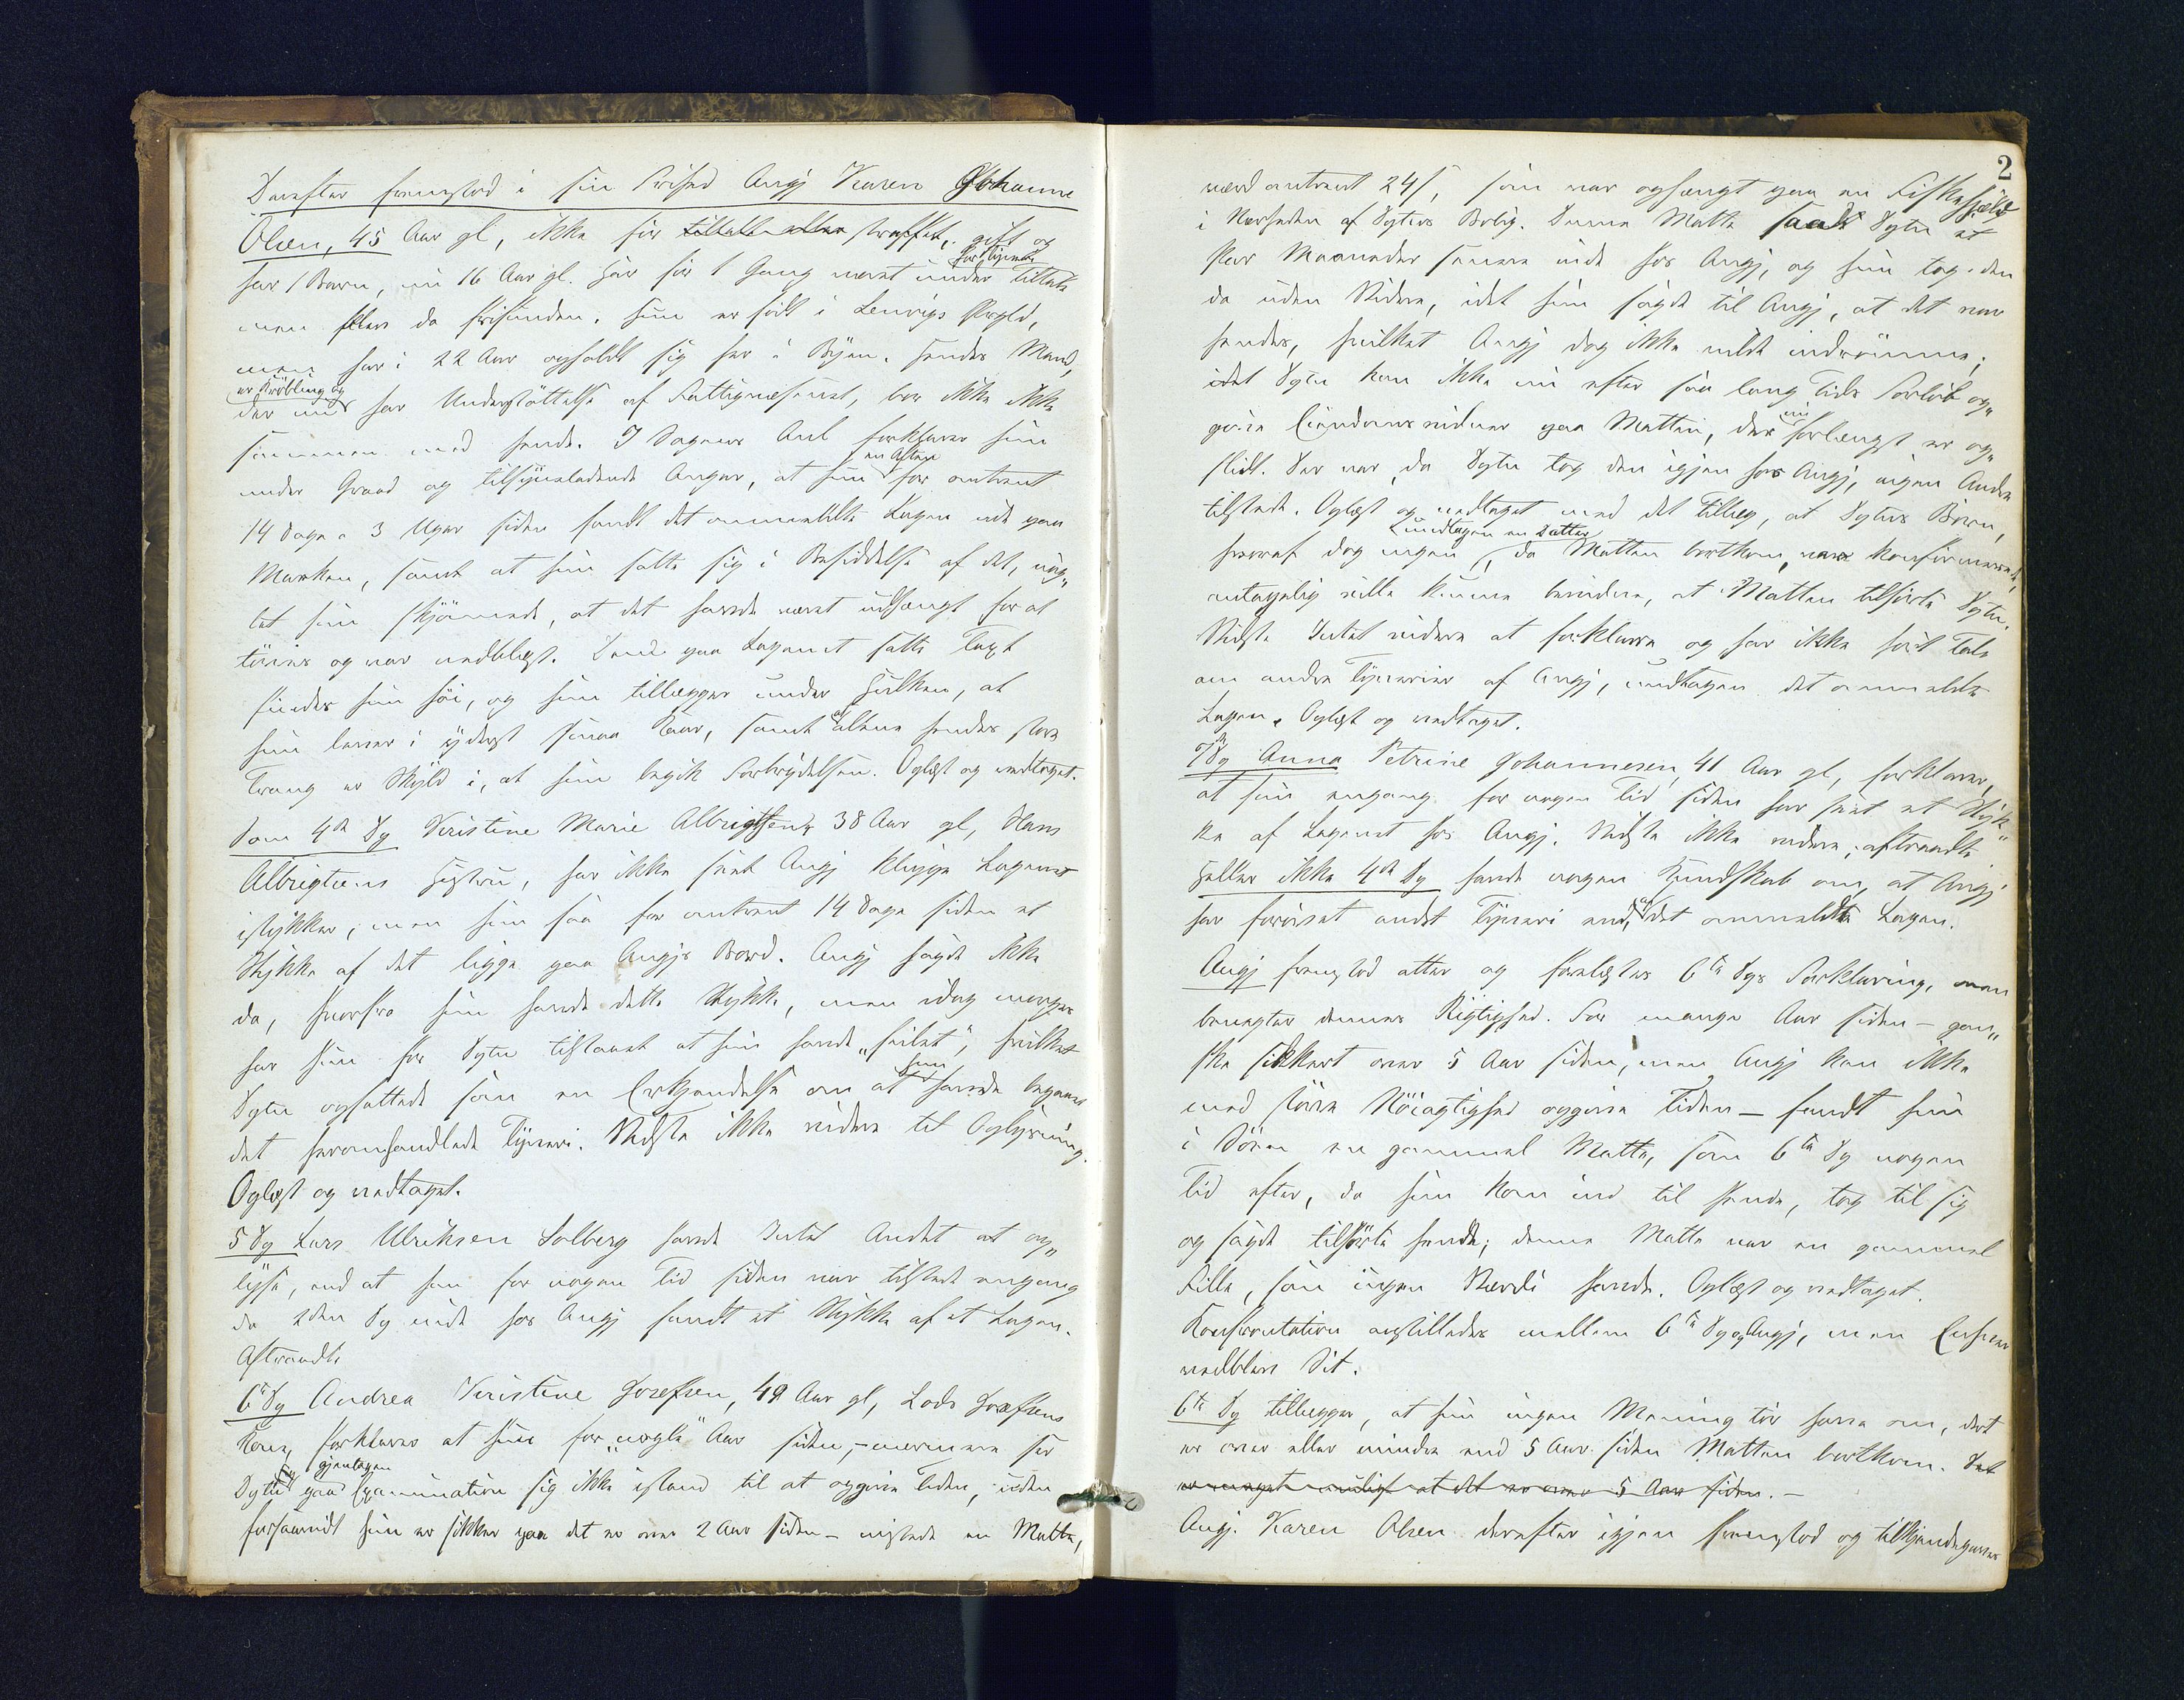 Derefter fremstod i sin Frihed Angj Karen Johanne
Olsen, 45 Aar gl, ikke før tiltalt eller straffet, gift og
har 1 Barn, nu 16 Aar gl. Har før 1 Gang været under Tiltale for Tyveri
men blev da frifunden. Hun er født i Lenvigs Prgld,
men har i 22 Aar opholdt sig her i Byen. Hendes Mand,
der er Krøbling og har Understøttelse af Fattigvæsenet, bor ikke
sammen med hende. I Sagens Anl forklarer hun
under Graad og tilsyneladende Anger, at hun en Aften for omtrent
14 Dage a 3 Uger siden fandt det ommeldte Lagen ude paa
Marken, samt at hun satte sig i Besiddelse af det, uag„
tet hun skjønnede, at det havde været udhængt for at
tørres og var nedblæst. Den paa Lagenet satte Taxt
finder hun høi, og hun tillægger under Hulken, at
hun lever i yderst smaa Kaar, samt at alene hendes store
Trang er Skyld i, at hun begik Forbrydelsen. Oplæst og vedtaget.
Som 4de Vg Kristine Marie Albrigtsen, 38 Aar gl, Hans
Albrigtsens Hustru, har ikke seet Angj klippe Lagenet
istykker, men hun saa for omtrent 14 Dage siden et
Stykke af det ligge paa Angjs Bord. Angj sagde ikke
da, hvorfra hun havde dette Stykke, men idag morges
har hun for Vgtn tilstaaet at hun havde „feilet“, hvilket
Vgtn opfattede som en Erkjendelse om at hun havde begaaet
det heromhandlede Tyveri. Vidste ikke videre til Oplysning.
Oplæst og vedtaget.
5 Vg Lars Ulriksen Solberg havde Intet Andet at op„
lyse, end at han for nogen Tid siden var tilstede engang
da 2den Vg inde hos Angj fandt et Stykke af et Lagen.
Aftraadte
6te Vg Andrea Kristine Josefsen, 49 Aar gl, Lods Josefsens
Kone, forklarer at hun for „nogle“ Aar siden, – nærmere ser
Vgtn sig paa gjentagen Examination sig ikke istand til at opgive Tiden, uden
forsaavidt hun er sikker paa det er over 2 Aar siden – mistede en Matte,
2
værd omtrent 24 s, som var ophængt paa en Fiskehjeld
i Nærheden af Vgtns Bolig. Denne Matte saa Vgtn et
Par Maaneder senere inde hos Angj, og hun tog den
da uden Videre, idet hun sagde til Angj, at det var
hendes, hvilket Angj dog ikke vilde indrømme;
idet Vgtn kan ikke nu efter saa lang Tids Forløb op„
give Eiendomsvidner paa Matten, der nu forlængst er op„
slidt. Der var, da Vgtn tog den igjen hos Angj, ingen Andre
tilstede. Oplæst og vedtaget med det Tillæg, at Vgtns Børn,
hvoraf dog ingen, undtagen en Datter, da Matten bortkom, var konfirmerede,
antagelig ville kunne bevidne, at Matten tilhørte Vgtn.
Vidste Intet videre at forklare og har ikke hørt Tale
om andre Tyverier af Angj, undtagen det ommeldte
Lagen. Oplæst og vedtaget.
7de Vg Anna Petrine Johannesen, 41 Aar gl, forklarer,
at hun engang for nogen Tid siden har seet et Styk„
ke af Lagenet hos Angj. Vidste ikke videre; aftraadte.
Heller ikke 4de Vg havde nogen Kundskab om, at Angj
har forøvet andet Tyveri end af det ommeldte Lagen.
Angj fremstod atter og forelæstes 6te Vgs Forklaring, men
benegter dennes Rigtighed. For mange Aar siden – gan„
ske sikkert over 5 Aar siden, men Angj kan ikke
med større Nøiagtighed opgive Tiden – fandt hun
i Søen en gammel Matte, som 6te Vg nogen
Tid efter, da hun kom ind til hende, tog til sig
og sagde tilhørte hende; denne Matte var en gammel
Fille, som ingen Værdi havde. Oplæst og vedtaget.
Konfrontation anstilledes mellem 6te Vg og Angj, men Enhver
vedblev Sit.
6te Vg tillægger, at hun ingen Mening tør have om, det
er over eller mindre end 5 Aar siden Matten bortkom. Det
er meget muligt at det er over 5 Aar siden. –
Angj. Karen Olsen derefter igjen fremstod og tilkjendegaves